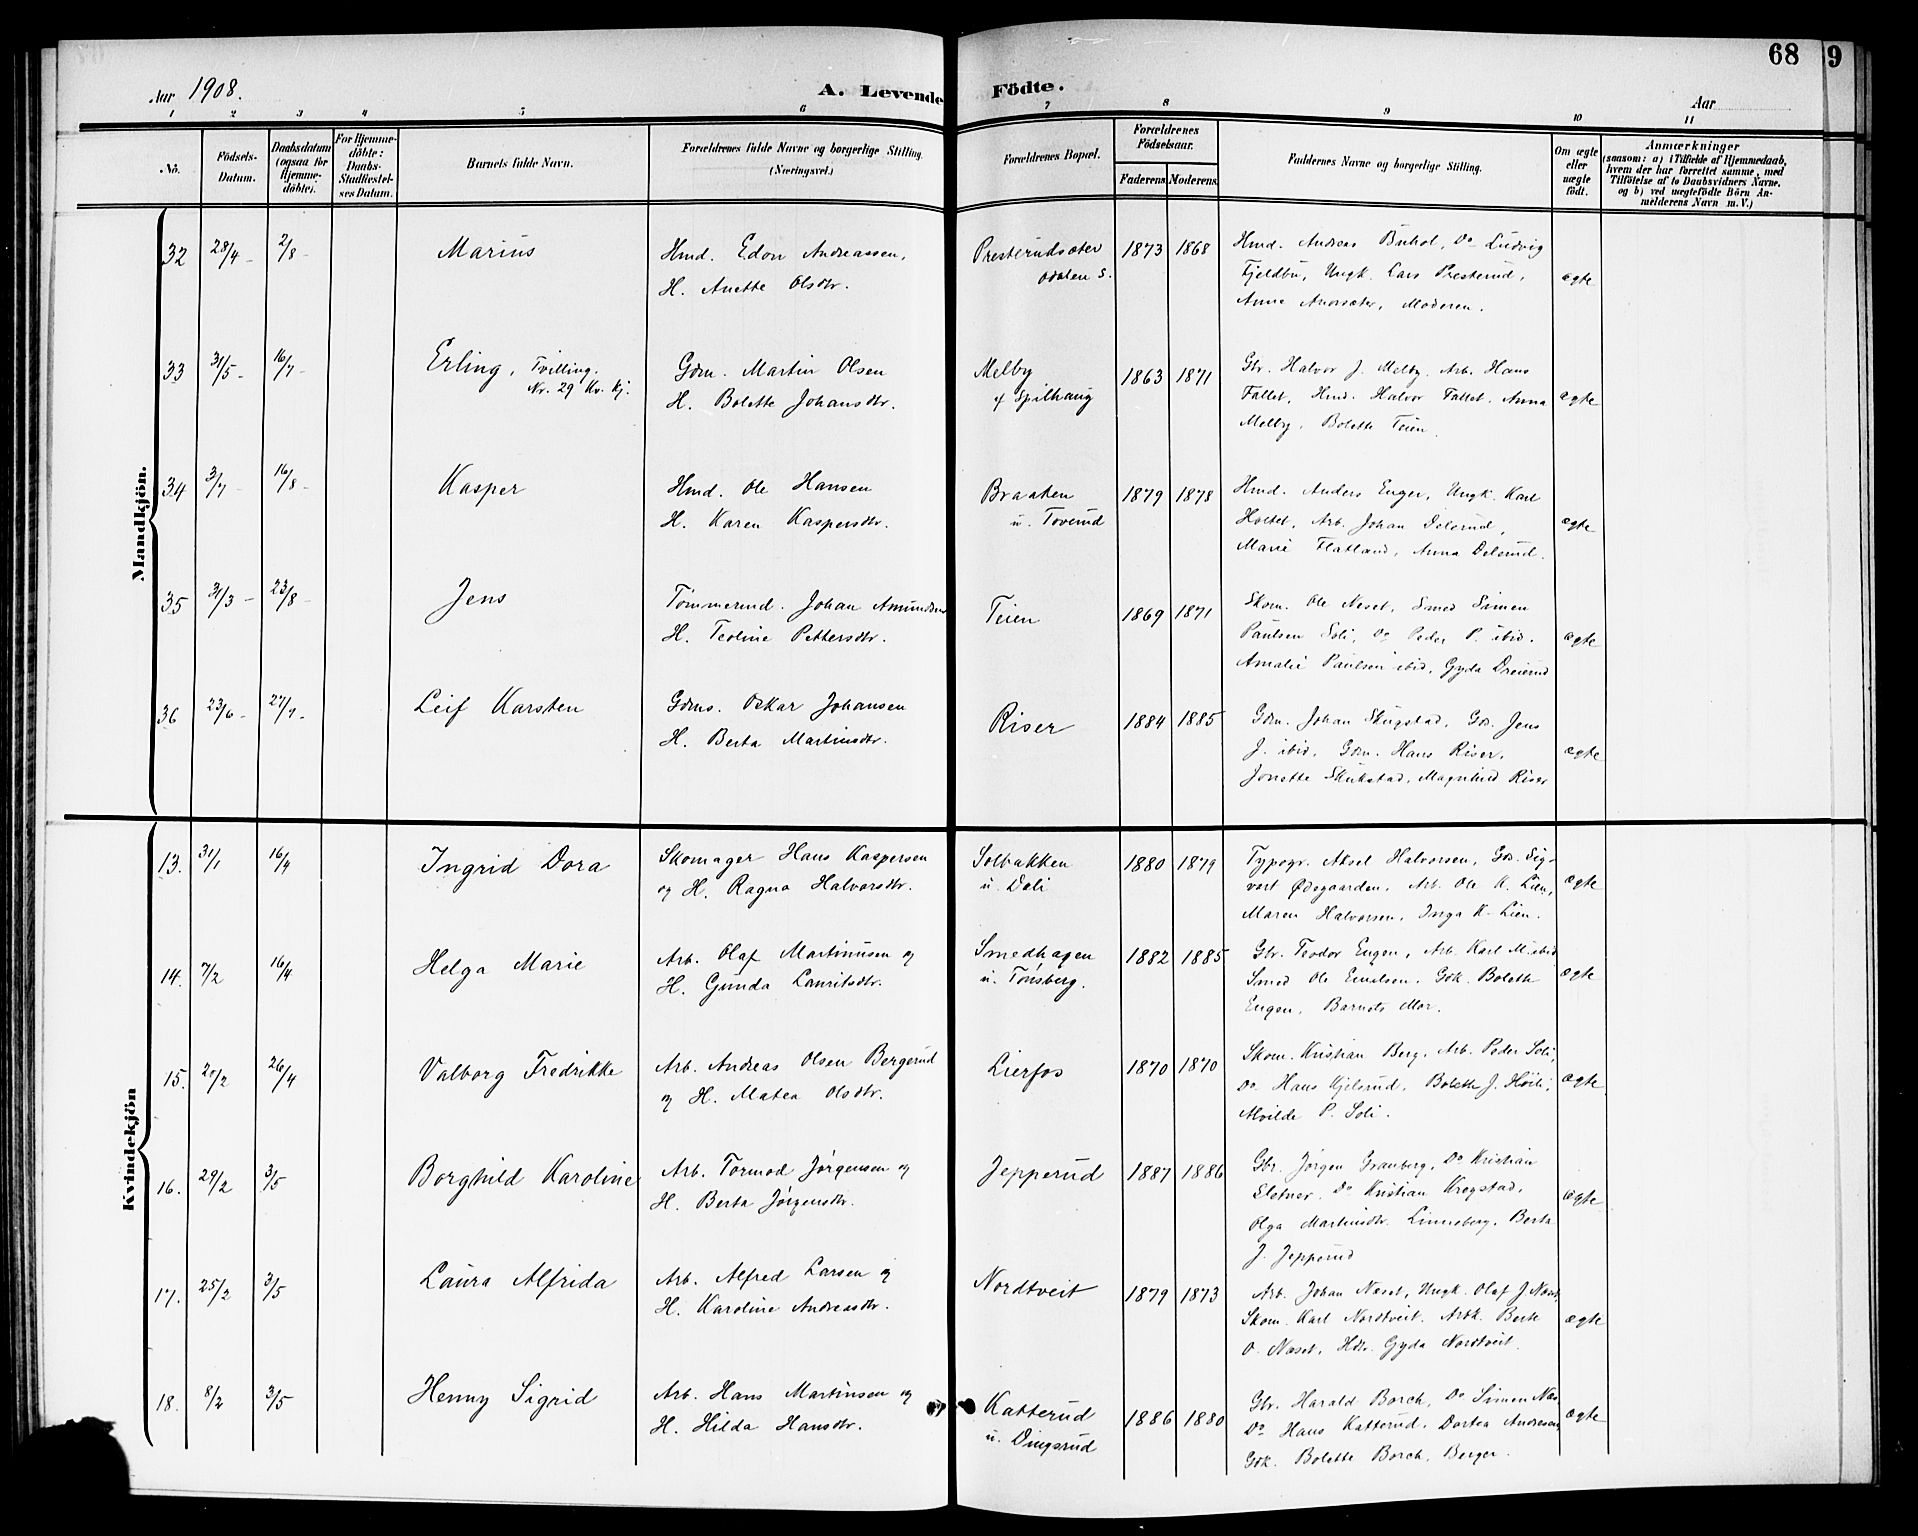 68 9
Aar 1908. A. Levende Födte. Aar
1 2 3 4 5 6 7 8 9 10 11
No. Födsels-Datum. Daabsdatum (ogsaa för Hjemme-döbte). For Hjemme-döbte: Daabs-Stadfæstel-ses Datum. Barnets fulde Navn. Forældrenes fulde Navne og borgerlige Stilling. (Næringsvei.) Forældrenes Bopæl. Forældrenes Födselsaar. Faderens. Moderens. Faddernes Navne og borgerlige Stilling. Om ægte eller uægte födt. Anmærkninger (saasom: a) i Tilfælde af Hjemmedaab, hvem der har forrettet samme, med Tilföielse af to Daabsvidners Navne, og b) ved uægtefödte Börn An-melderens Navn m. V.)
Mandkjön.
32 28/4 - 2/8 - Marius Hmd. Edon Andreassen, Presterudsæter 1873 1868 Hmd. Andreas Buhol, Do Ludvig
H. Anette Olsdtr. Odalen S. Fjeldbu, Ungk. Lars Presterud, ægte
Anne Anorsæter, Moderen.
33 31/5 - 16/7 - Erling, Tvilling. Gdm. Martin Olsen Melby 1863 1871 Gbr. Halvor J. Melby. Arb. Hans
Nr. 29 Kv. Kj. H. Bolette Johansdtr. f Spilhaug Fallet, Hmd. Halvor Fallet. Anna ægte
Melby, Bolette Teien.
34 3/7 - 16/8 - Kasper Hmd. Ole Hansen Braaten 1879 1878 Hmd. Anders Enger, Ungk. Karl
H. Karen Kaspersdtr. u. Toverud Holtet, Arb. Johan Delerud, ægte
Marie Flatland, Anna Delerud.
35 31/3 - 23/8 - Jens Tømmermd. Johan Amundsen Teien 1869 1871 Skom. Ole Neset, Smed Simen
H. Teoline Pettersdtr. Paulsen Soli, Do Peder P. ibid. ægte
Amalie Paulsen ibid, Gyda Dreierud
36 23/6 - 27/7 - Leif Karsten Gdms. Oskar Johansen Riser 1884 1885 Gdm. Johan Skugstad, Gds. Jens
H. Berta Martinsdtr. J. ibid, Gdm. Hans Riser, ægte
Jonette Skukstad, Magnhild Riser
Kvindekjön
13. 31/1 16/4 Ingrid Dora Skomager Hans Kaspersen Solbakken 1880 1879 Typogr. Aksel Halvorsen, Gds. Sig-
og H. Ragna Halvorsdtr. u. Deli vart Ødegaarden, Arb. Ole K. Lien, ægte
Maren Halvorsen, Inga K. Lien.
14. 7/2 16/4 Helga Marie Arb. Olaf Martinusen og Smedhagen 1882 1885 Gbr. Teodor Engen, Arb. Karl M. ibid
H. Gunda Lauritsdtr. u. Tønsberg. Smed Ole Emilsen. Gdk. Bolette ægte
Engen, Barnets Mor.
15. 27/2 26/4 Valborg Fredrikke Arb. Andreas Olsen Bergerud Lierfos 1870 1870 Skom. Kristian Berg, Arb. Peder Soli,
og H. Matea Olsdtr. Do Hans Kjelsrud, Bolette J. Høili, ægte
Alvilde P. Soli.
16. 29/2 3/5 Borghild Karoline Arb. Tormod Jørgensen og Jepperud 1887 1886 Gbr. Jørgen Granberg, Do Kristian
H. Berta Jørgensdtr. Sletner. Do Kristian Krogstad, ægte
Olga Martinsdtr. Linneberg, Berta
J. Jepperud
17. 25/2 3/5 Laura Alfrida Arb. Alfred Larsen og Nordtveit 1879 1873 Arb. Johan Næset, Ungk. Olaf J. Næset,
H. Karoline Andreasdtr. Skom. Karl Nordtveit, Arbk. Berte ægte
O. Næset, Hdtr. Gyda Nordtveit.
18. 8/2 3/5 Henny Sigrid Arb. Hans Martinsen og Katterud 1886 1880 Gbr. Harald Borch, Do Simen Næs,
H. Hilda Hansdtr. u. Dingsrud Do Hans Katterud, Dortea Andresen, ægte
Gdk. Bolette Borch, Berger.